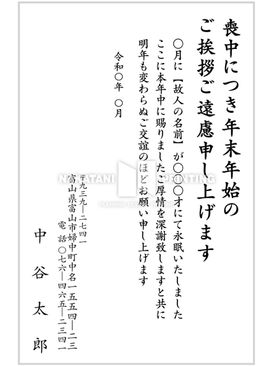 喪中につき年末年始の
ご挨拶ご遠慮申し上げます
〇月に【故人の名前】が〇〇〇才にて永眠いたしました
ここに本年中に賜りましたご厚情を深謝致しますと共に
明年も変わらぬご交誼のほどお願い申し上げます
令和〇年 〇月
〒九三九-二七四一
富山県富山市婦中町中名一五五四-二三
電話〇七六-四六五-二三四一
中谷太郎
NAKATANI PRINTING